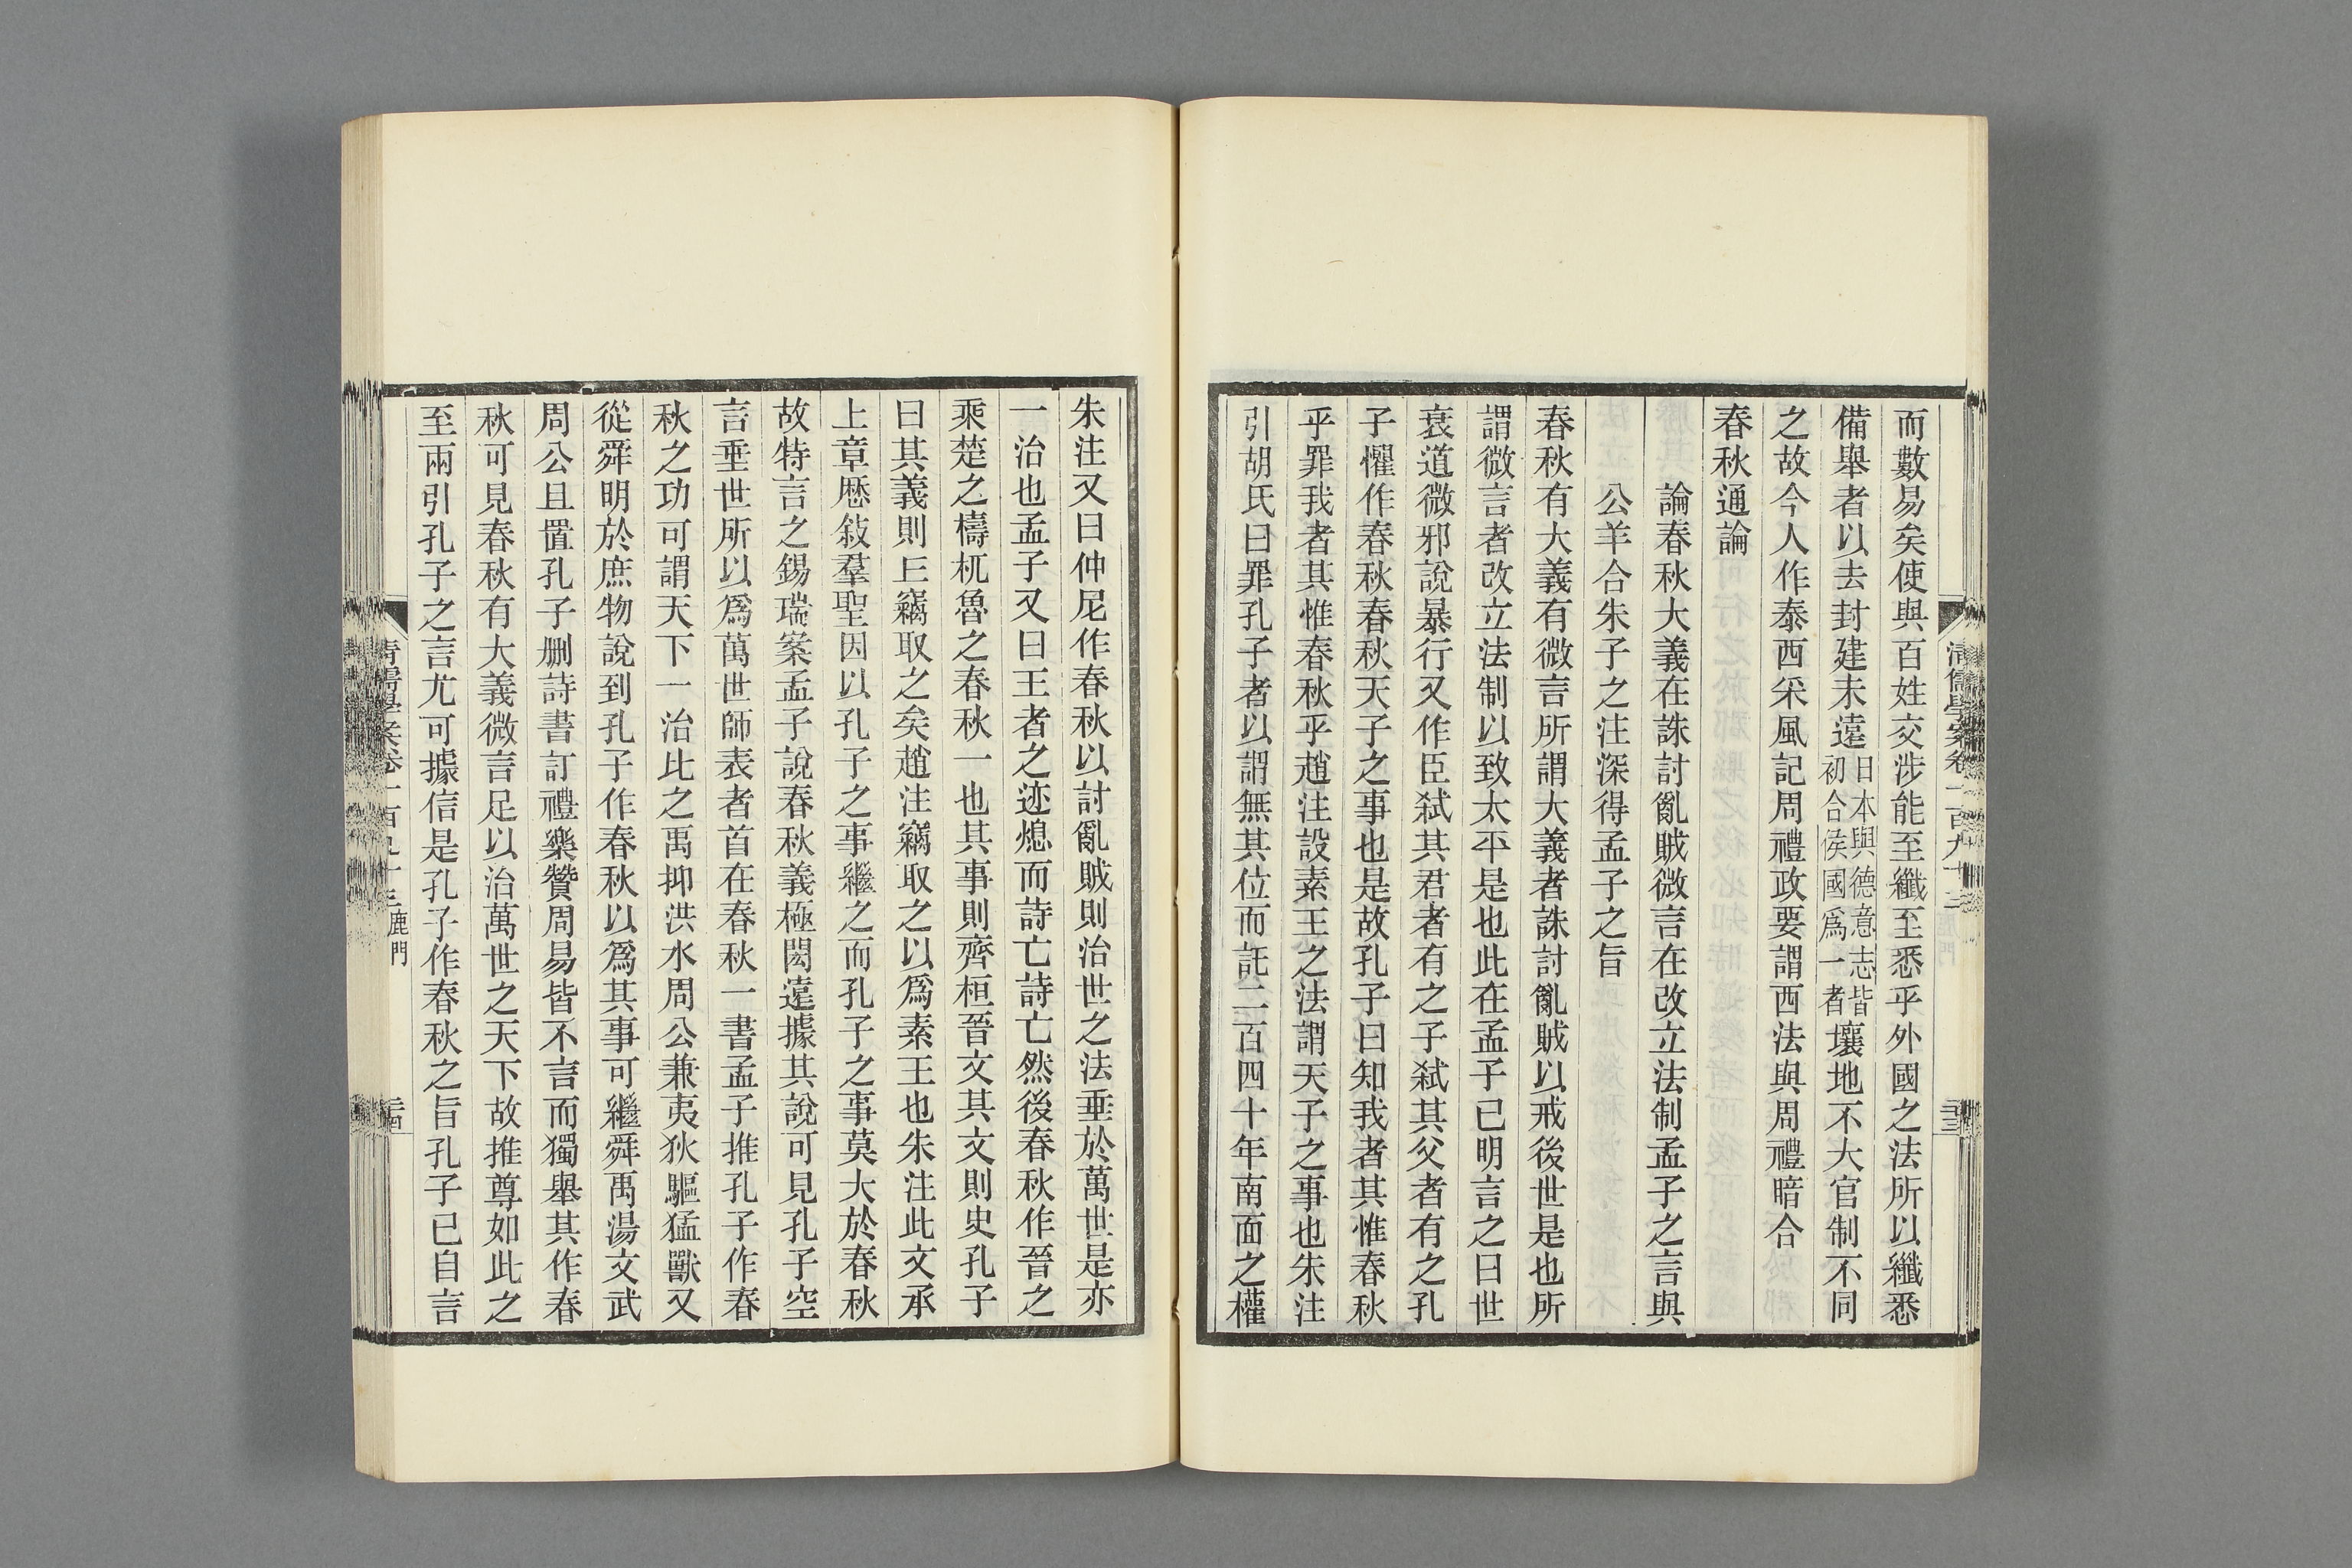 而數易矣使與百姓交涉能至纖至悉乎外國之法所以纖悉
備舉者以去封建未遠日本與德意志皆初合侯國爲一者壤地不大官制不同
之故今人作泰西采風記周禮政要謂西法與周禮暗合
春秋通論
論春秋大義在誅討亂賊微言在改立法制孟子之言與
公羊合朱子之注深得孟子之旨
春秋有大義有微言所謂大義者誅討亂賊以戒後世是也所
謂微言者改立法制以致太平是也此在孟子已明言之曰世
衰道微邪說暴行又作臣弒其君者有之子弒其父者有之孔
子懼作春秋春秋天子之事也是故孔子曰知我者其惟春秋
乎罪我者其惟春秋乎趙注設素王之法謂天子之事也朱注
引胡氏曰罪孔子者以謂無其位而託二百四十年南面之權
清儒學案卷一百九十三
朱注又曰仲尼作春秋以討亂賊則治世之法垂於萬世是亦
一治也孟子又曰王者之迹熄而詩亡詩亡然後春秋作晉之
乘楚之檮杌魯之春秋一也其事則齊桓晉文其文則史孔子
曰其義則丘竊取之矣趙注竊取之以爲素王也朱注此文承
上章歷敍羣聖因以孔子之事繼之而孔子之事莫大於春秋
故特言之錫瑞案孟子說春秋義極閎遠據其說可見孔子空
言垂世所以爲萬世師表者首在春秋一書孟子推孔子作春
秋之功可謂天下一治比之禹抑洪水周公兼夷狄驅猛獸又
從舜明於庶物說到孔子作春秋以爲其事可繼舜禹湯文武
周公且置孔子删詩書訂禮樂贊周易皆不言而獨舉其作春
秋可見春秋有大義微言足以治萬世之天下故推尊如此之
至兩引孔子之言尤可據信是孔子作春秋之旨孔子已自言
清儒學案卷一百九十三 鹿門